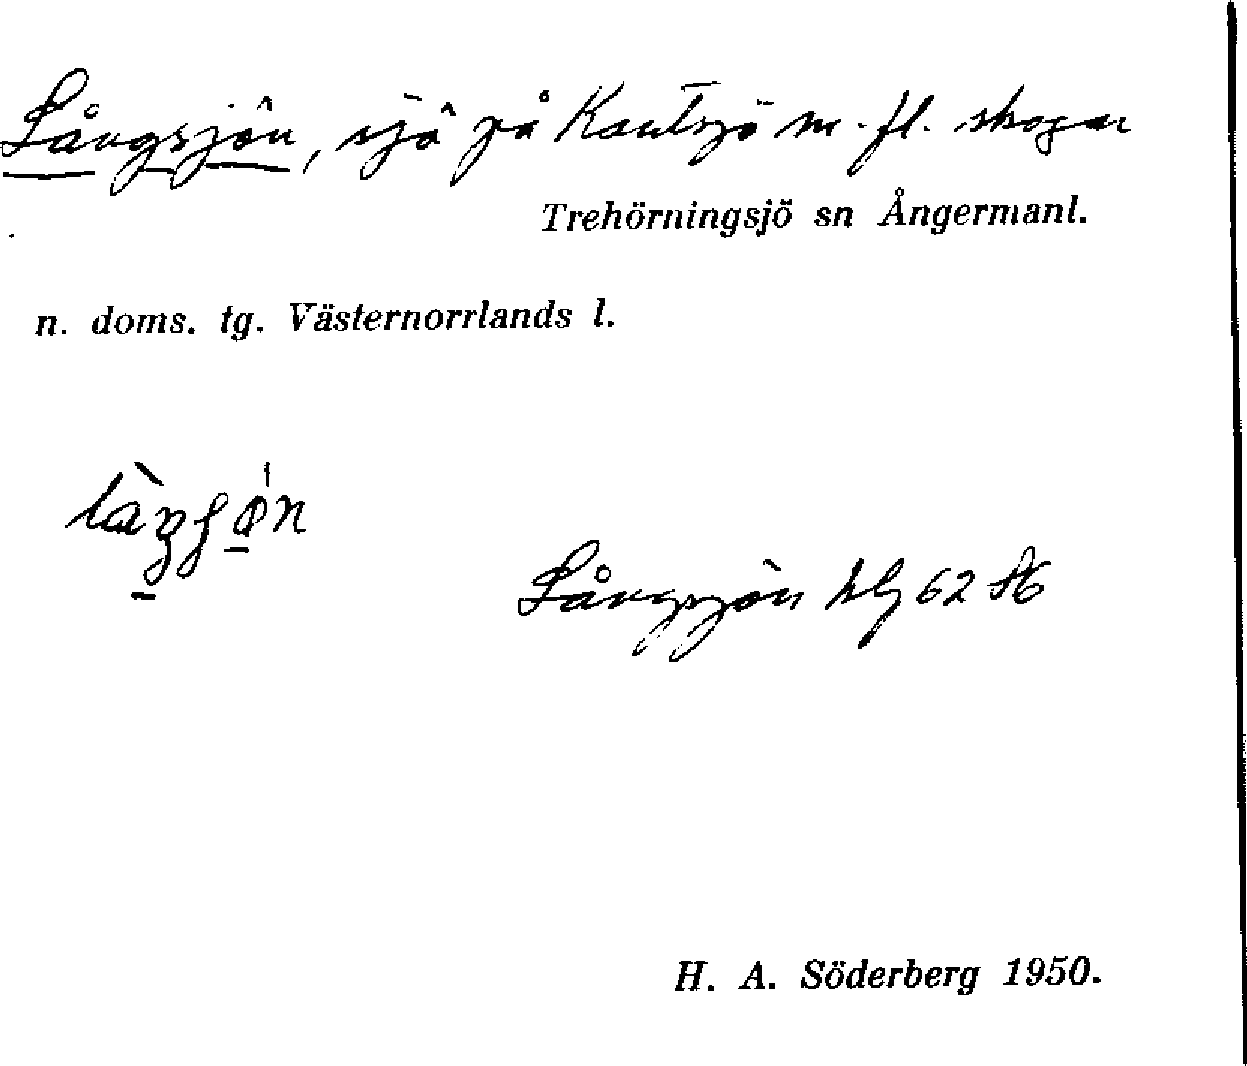 Långsjön, sjö på Kantsjö m. fl. skogar
Trehörningsjö sn Ångermanl.
n. doms. tg. Västernorrlands l.
Långsjön 62
H. A. Söderberg 1950.